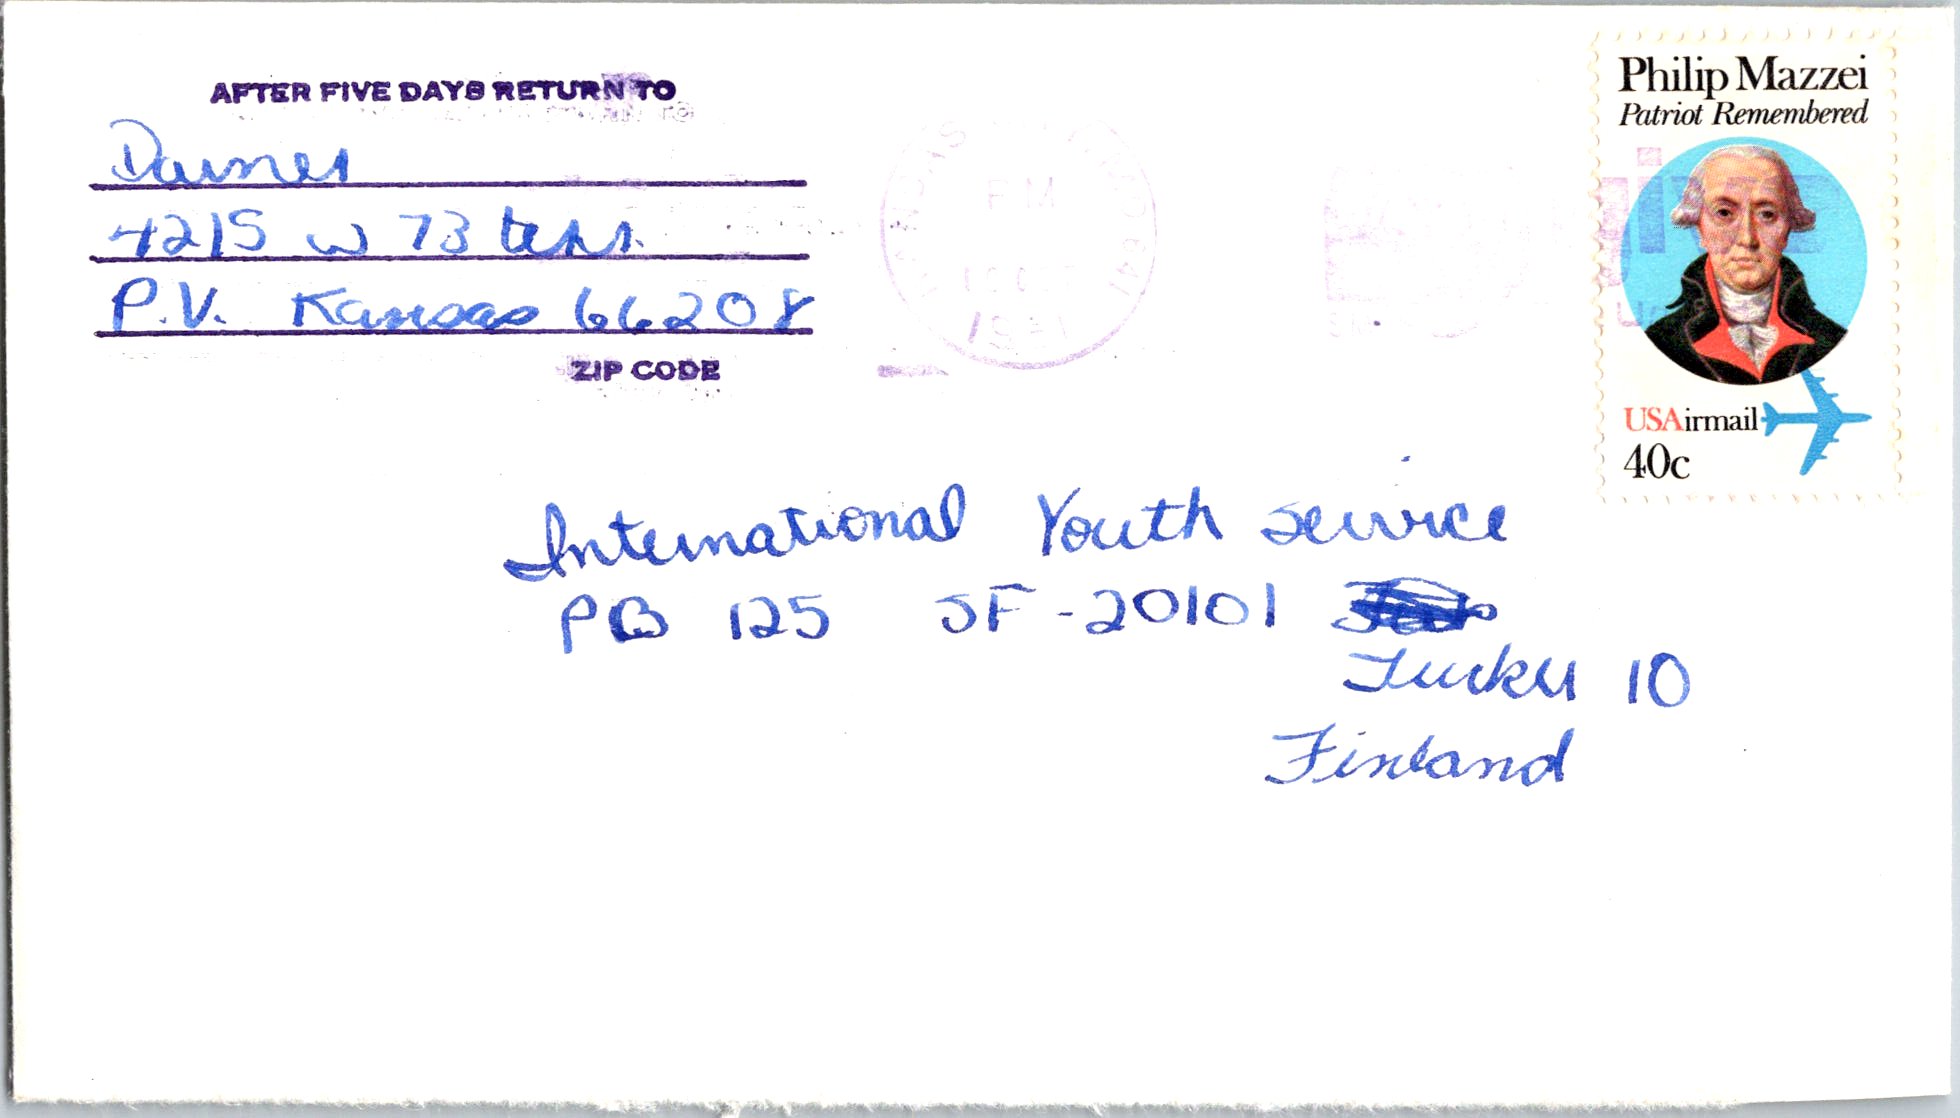 AFTER FIVE DAYS RETURN TO
4215 W 73 terr.
P.V. Kansas 66208
ZIP CODE
PM
Philip Mazzei
Patriot Remembered
USAirmail
40c
International Youth Service
PB 125 SF-20101
Turku 10
Finland